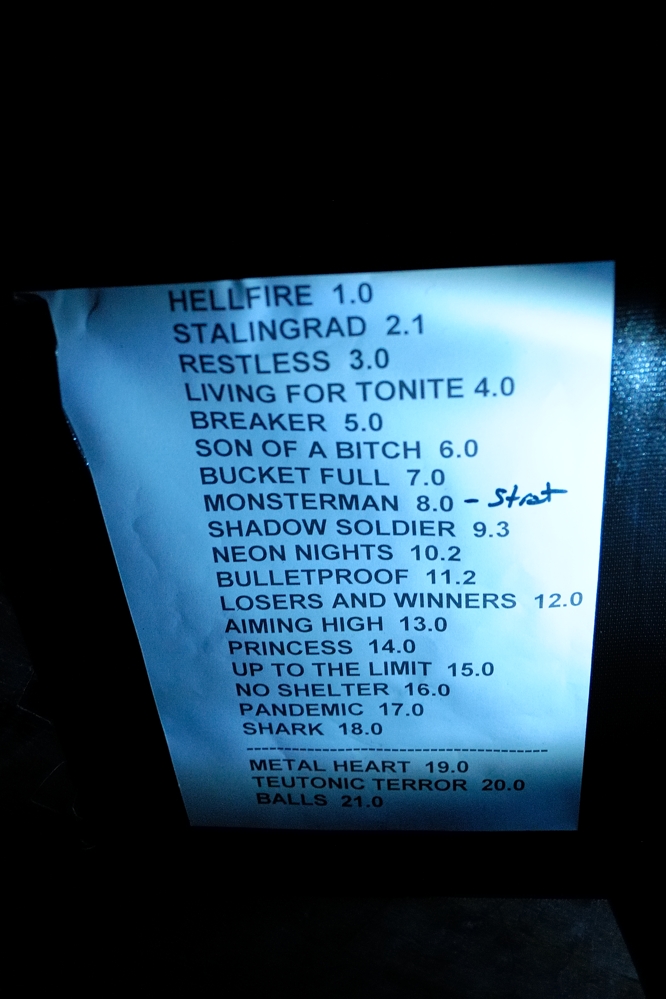 HELLFIRE 1.0
STALINGRAD 2.1
RESTLESS 3.0
LIVING FOR TONITE 4.0
BREAKER 5.0
SON OF A BITCH 6.0
BUCKET FULL 7.0
MONSTERMAN 8.0 - Strat
SHADOW SOLDIER 9.3
NEON NIGHTS 10.2
BULLETPROOF 11.2
LOSERS AND WINNERS 12.0
AIMING HIGH 13.0
PRINCESS 14.0
UP TO THE LIMIT 15.0
NO SHELTER 16.0
PANDEMIC 17.0
SHARK 18.0
----------------------------------------
METAL HEART 19.0
TEUTONIC TERROR 20.0
BALLS 21.0